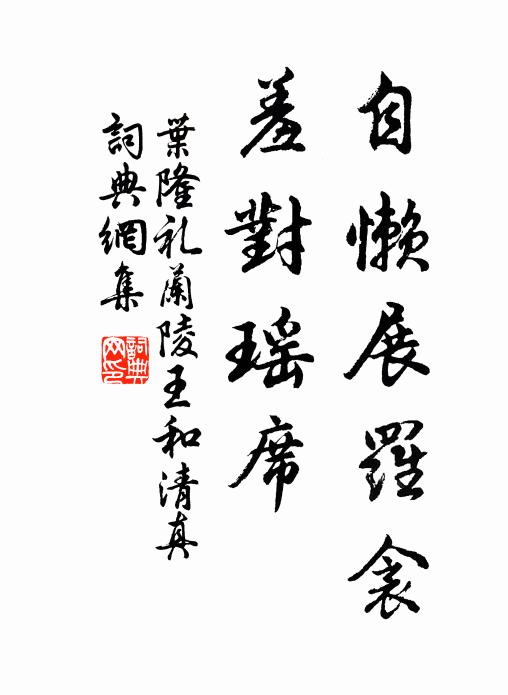 自懶展羅衾
羞對瑶席
葉隆礼蘭陵王和清真
詞典網集
詞典网印